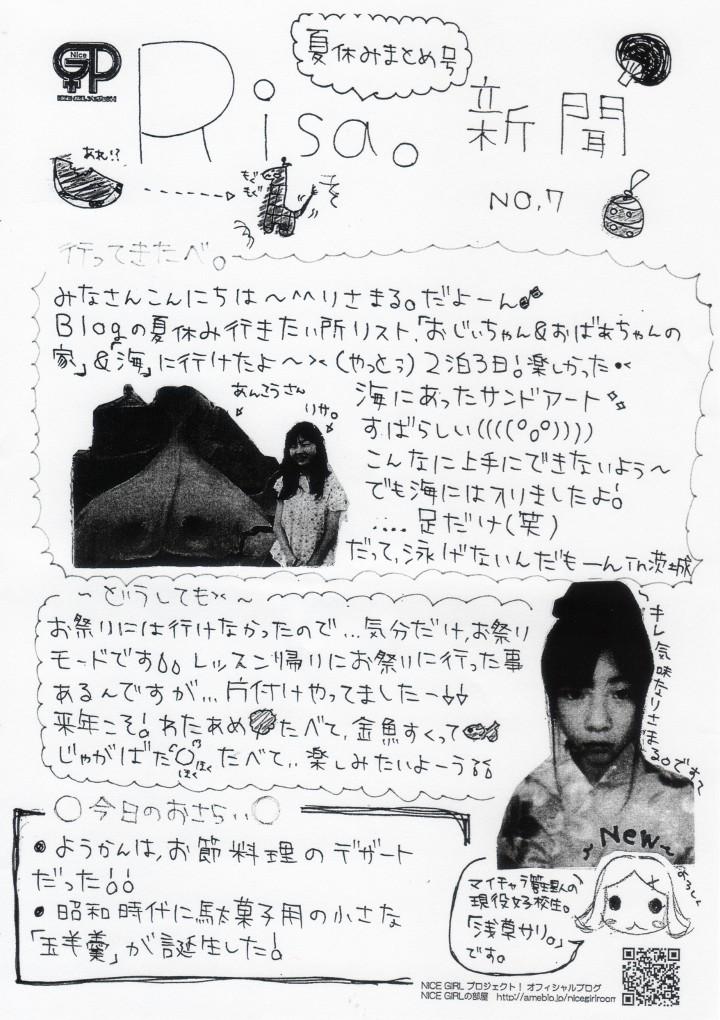 夏休みまとめ号
Nice GP
NICE GIRL プロジェクト!
Risa。新聞
あれ!?
もぐもぐ
NO,7
行ってきたべ。
みなさんこんにちは〜^^りさまる。だよーん
Blogの夏休み行きたい所リスト、「おじいちゃん&おばあちゃんの
家」&「海」に行けたよ〜>< (やっとぅ) 2泊3日!楽しかった
あんこうさん
りさ。
海にあったサンドアート
すばらしい((((°o°))))
こんなに上手にできないよう〜
でも海には入りましたよ!
.... 足だけ(笑)
だって、泳げないんだもーん in茨城
〜どうしても><〜
お祭りには行けなかったので...気分だけ、お祭り
モードです!! レッスン帰りにお祭りに行った事
あるんですが... 片付けやってましたー
来年こそ!わたあめたべて、金魚すくって
じゃがばたほくほくたべて、、楽しみたいよーう
キレ気味なりさまる。です〜
○今日のおさらい○
• ようかんは、お節料理のデザート
だった!!
• 昭和時代に駄菓子用の小さな
「玉羊羹」が誕生した!
〜New〜
マイキャラ管理人の
現役女子校生。
「浅草サリ。」
です。
NICE GIRL プロジェクト! オフィシャルブログ
NICE GIRLの部屋 http://ameblo.jp/nicegirlroom